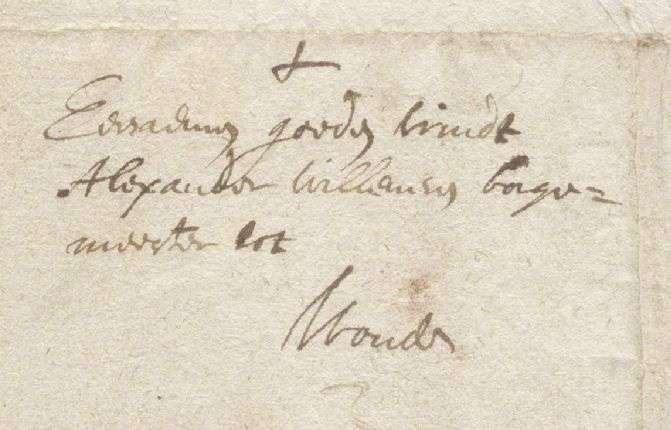 Eersaemen goeden vrindt
Alexander Willemen borge=
meester tot
Woude